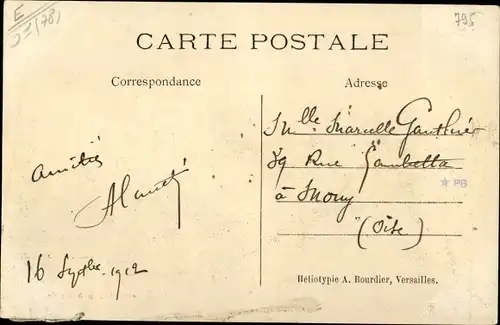 E
(78)
795
CARTE POSTALE
Correspondance
Adresse
Mlle Marcelle Gauthier
89 Rue Gambetta
à Mouy
(Oise)
Amitiés
16 Septbre 1912
PB
Héliotypie A. Bourdier, Versailles.